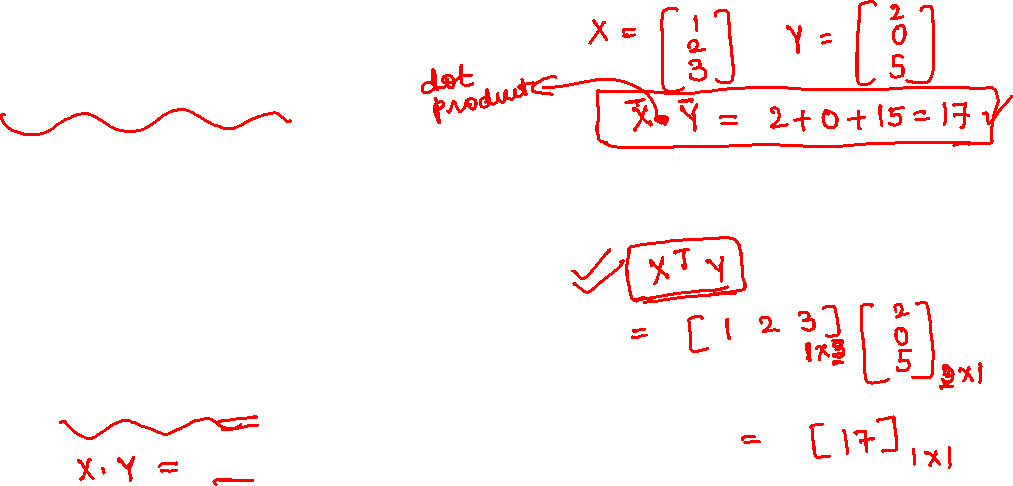 X = [1 2 3] Y = [2 0 5]
dot product
X̄ • Ȳ = 2 + 0 + 15 = 17 ✓
X^T Y
= [1 2 3] 1×3 [2 0 5] 3×1
= [17] 1×1
X . Y =